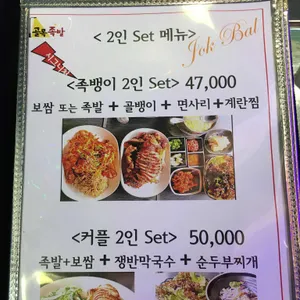 골목족발
< 2인 Set 메뉴>
Jok Bal
<족뱅이 2인 Set> 47,000
보쌈 또는 족발 + 골뱅이 + 면사리 + 계란찜
<커플 2인 Set> 50,000
족발+보쌈 + 쟁반막국수 + 순두부찌개